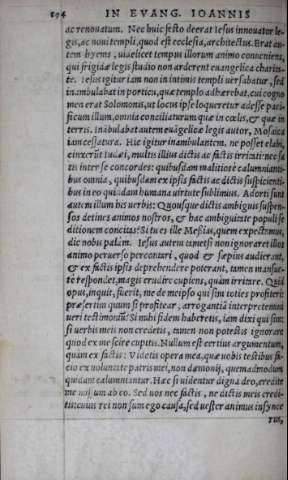 294 IN EVANG. IOANNIS
ac renouatum. Nec huic festo deerat Iesus innouator le-
gis, ac noui templi, quod est ecclesia, architectus. Erat au-
tem hyems, uidelicet tempus illorum animo conueniens,
qui frigidæ legis studio non arderent euangelica charita-
te. Iesus igitur iam non in intimis templi uersabatur, sed
inambulabat in porticu, quæ templo adhærebat, cui cogno
men erat Solomonis, ut locus ipse loqueretur adesse paci-
ficum illum, omnia conciliaturum quæ in cœlis, & quæ in
terris. Inambulabat autem euãgelicæ legis autor, Mosaica
iam cessatura. Hic igitur inambulantem, ne posset elabi,
cinxerũt Iudæi, multis illius dictis ac factis irritati: nec sa
tis inter se concordes: quibusdam malitiose calumnianti-
bus omnia, quibusdam ex ipsis factis ac dictis suspicienti-
bus in eo quiddam humana uirtute sublimius. Adorti sunt
autem illum his uerbis: Quousque dictis ambiguis suspen-
sos detines animos nostros, & hac ambiguitate populi se
ditionem concitas? Si tu es ille Messias, quem expectamus,
dic nobis palàm. Iesus autem tametsi non ignoraret illos
animo peruerso percontari, quod & sæpius audierant,
& ex factis ipsis deprehendere poterant, tamen mansue-
tè respondet, magis erudire cupiens, quàm irritare. Quid
opus, inquit, fuerit, me de meipso qui sim toties profiteri?
præsertim quum si profitear, arrogantiæ interpretemini
ueri testimoniũ? Si mihi fidem haberetis, iam dixi qui sim:
si uerbis meis non creditis, tamen non potestis ignorare
quod ex me scire cupitis. Nullum est certius argumentum,
quàm ex factis: Videtis opera mea, quæ uobis testibus fa-
cio ex uoluntate patris mei, non dæmonij, quemadmodum
quidam calumniantur. Hæc si uidentur digna deo, credite
me missum ab eo. Sed uos nec factis, ne dictis meis credi-
tis: cuius rei non sum ego causa, sed uester animus insynce
rus,